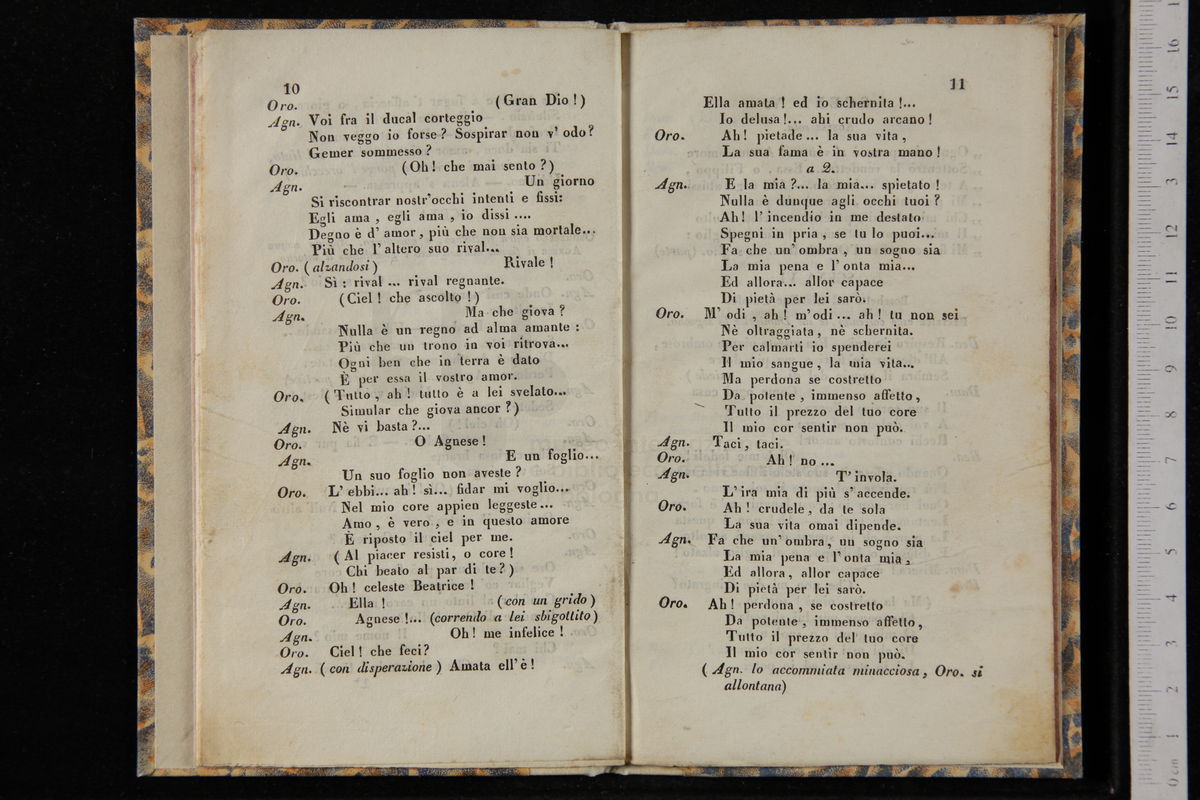 10
Oro. (Gran Dio!)
Agn. Voi fra il ducal corteggio
Non veggo io forse? Sospirar non v' odo?
Gemer sommesso?
Oro. (Oh! che mai sento?)
Agn. Un giorno
Si riscontrar nostr'occhi intenti e fissi:
Egli ama, egli ama, io dissi ....
Degno è d' amor, più che non sia mortale...
Più che l' altero suo rival...
Oro. (alzandosi) Rivale!
Agn. Sì: rival ... rival regnante.
Oro. (Ciel! che ascolto!)
Agn. Ma che giova?
Nulla è un regno ad alma amante:
Più che un trono in voi ritrova...
Ogni ben che in terra è dato
È per essa il vostro amor.
Oro. (Tutto, ah! tutto è a lei svelato...
Simular che giova ancor?)
Agn. Nè vi basta?...
Oro. O Agnese!
Agn. E un foglio...
Un suo foglio non aveste?
Oro. L' ebbi... ah! sì... fidar mi voglio...
Nel mio core appien leggeste...
Amo, è vero, e in questo amore
È riposto il ciel per me.
Agn. (Al piacer resisti, o core!
Chi beato al par di te?)
Oro. Oh! celeste Beatrice!
Agn. Ella! (con un grido)
Oro. Agnese!... (correndo a lei sbigottito)
Agn. Oh! me infelice!
Oro. Ciel! che feci?
Agn. (con disperazione) Amata ell'è!
11
Ella amata! ed io schernita!...
Io delusa!... ahi crudo arcano!
Oro. Ah! pietade... la sua vita,
La sua fama è in vostra mano!
a 2.
Agn. E la mia?... la mia... spietato!
Nulla è dunque agli occhi tuoi?
Ah! l' incendio in me destato
Spegni in pria, se tu lo puoi...
Fa che un' ombra, un sogno sia
La mia pena e l' onta mia...
Ed allora... allor capace
Di pietà per lei sarò.
Oro. M' odi, ah! m'odi... ah! tu non sei
Nè oltraggiata, nè schernita.
Per calmarti io spenderei
Il mio sangue, la mia vita...
Ma perdona se costretto
Da potente, immenso affetto,
Tutto il prezzo del tuo core
Il mio cor sentir non può.
Agn. Taci, taci.
Oro. Ah! no ...
Agn. T' invola.
L' ira mia di più s' accende.
Oro. Ah! crudele, da te sola
La sua vita omai dipende.
Agn. Fa che un' ombra, un sogno sia
La mia pena e l' onta mia,
Ed allora, allor capace
Di pietà per lei sarò.
Oro. Ah! perdona, se costretto
Da potente, immenso affetto,
Tutto il prezzo del tuo core
Il mio cor sentir non può.
(Agn. lo accommiata minacciosa, Oro. si
allontana)